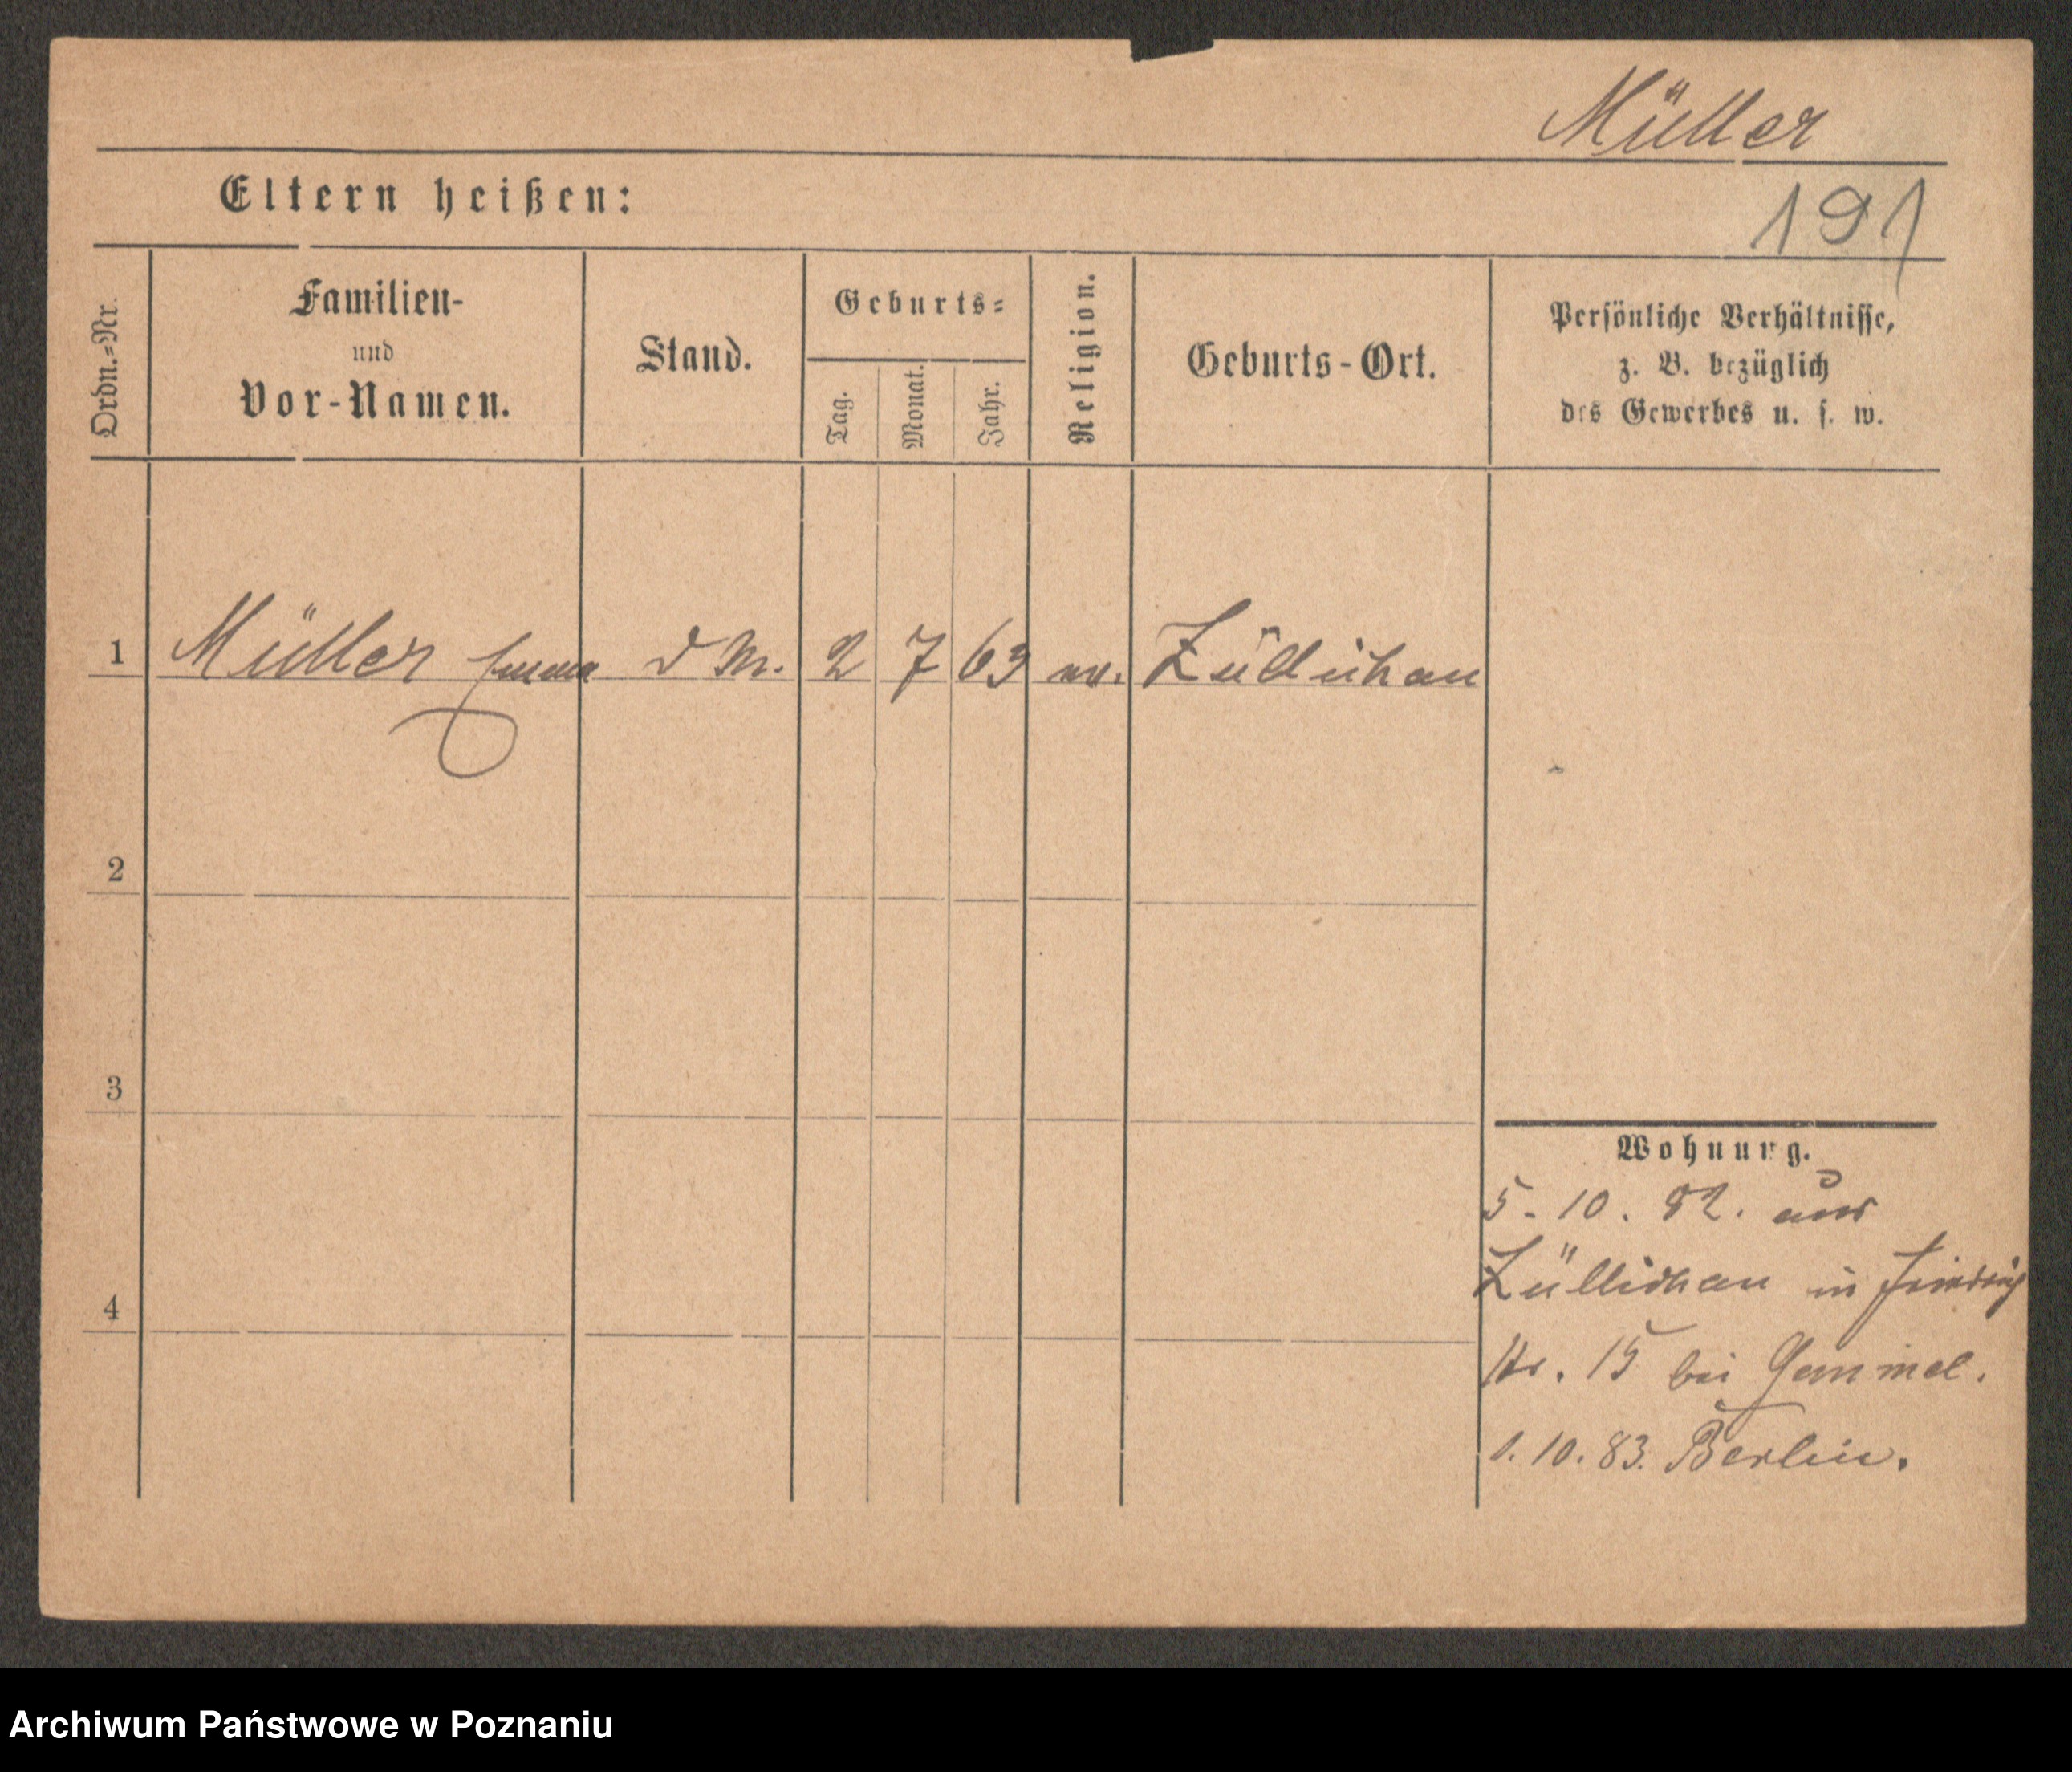 Müller
Eltern heißen:
191
Ordn.=Nr.
Familien-
und
Vor-Namen.
Stand.
Geburts=
Tag.
Monat.
Jahr.
Religion.
Geburts-Ort.
Persönliche Verhältnisse,
z. B. bezüglich
des Gewerbes u. s. w.
1 Müller Emma d M. 2 7 63 ev. Züllichau
2
3
4
Wohnung.
5. 10. 82. aus
Züllichau in
Nr. 15 bei
1. 10. 83. Berlin.
Archiwum Państwowe w Poznaniu